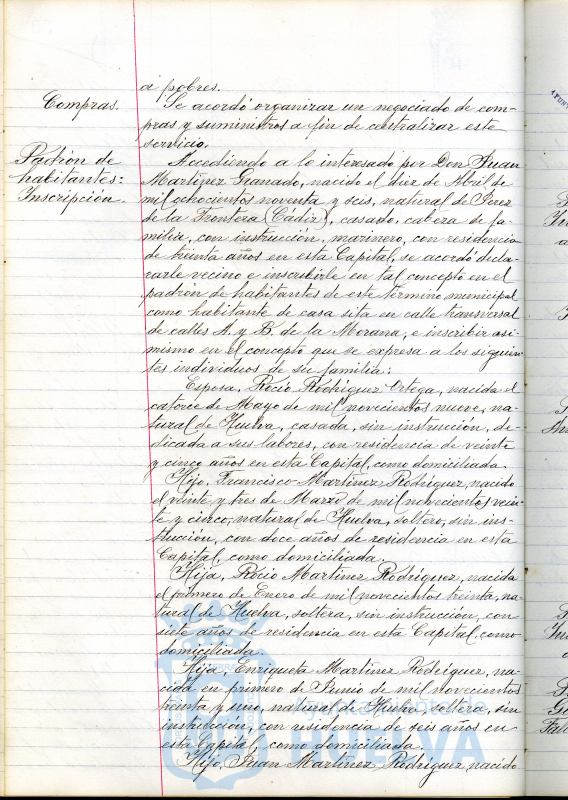 a pobres.
Compras.
Se acordó organizar un negociado de com-
pras y suministros a fin de centralizar este
servicio.
Padrón de
habitantes:
Inscripción.
Accediendo a lo interesado por Don Juan
Martínez Granado, nacido el diez de Abril de
mil ochocientos noventa y seis, natural de Jerez
de la Frontera (Cádiz), casado, cabeza de fa-
milia, con instrucción, marinero, con residencia
de treinta años en esta Capital, se acordó decla-
rarle vecino e inscribirle en tal concepto en el
padrón de habitantes de este término municipal
como habitante de casa sita en calle transversal
de calles A. y B. de la Morana, e inscribir asi-
mismo en el concepto que se expresa a los siguien-
tes individuos de su familia:
Esposa, Rocío Rodríguez Ortega, nacida el
catorce de Mayo de mil novecientos nueve, na-
tural de Huelva, casada, sin instrucción, de-
dicada a sus labores, con residencia de veinte
y cinco años en esta Capital, como domiciliada.
Hijo, Francisco Martínez Rodríguez, nacido
el veinte y tres de Marzo de mil novecientos vein-
te y cinco, natural de Huelva, soltero, sin ins-
trucción, con doce años de residencia en esta
Capital, como domiciliada.
Hija, Rocío Martínez Rodríguez, nacida
el primero de Enero de mil novecientos treinta, na-
tural de Huelva, soltera, sin instrucción, con
siete años de residencia en esta Capital, como
domiciliada.
Hija, Enriqueta Martínez Rodríguez, na-
cida en primero de Junio de mil novecientos
treinta y uno, natural de Huelva, soltera, sin
instrucción, con residencia de seis años en
esta Capital, como domiciliada.
HUELVA
Hijo, Juan Martínez Rodríguez, nacido